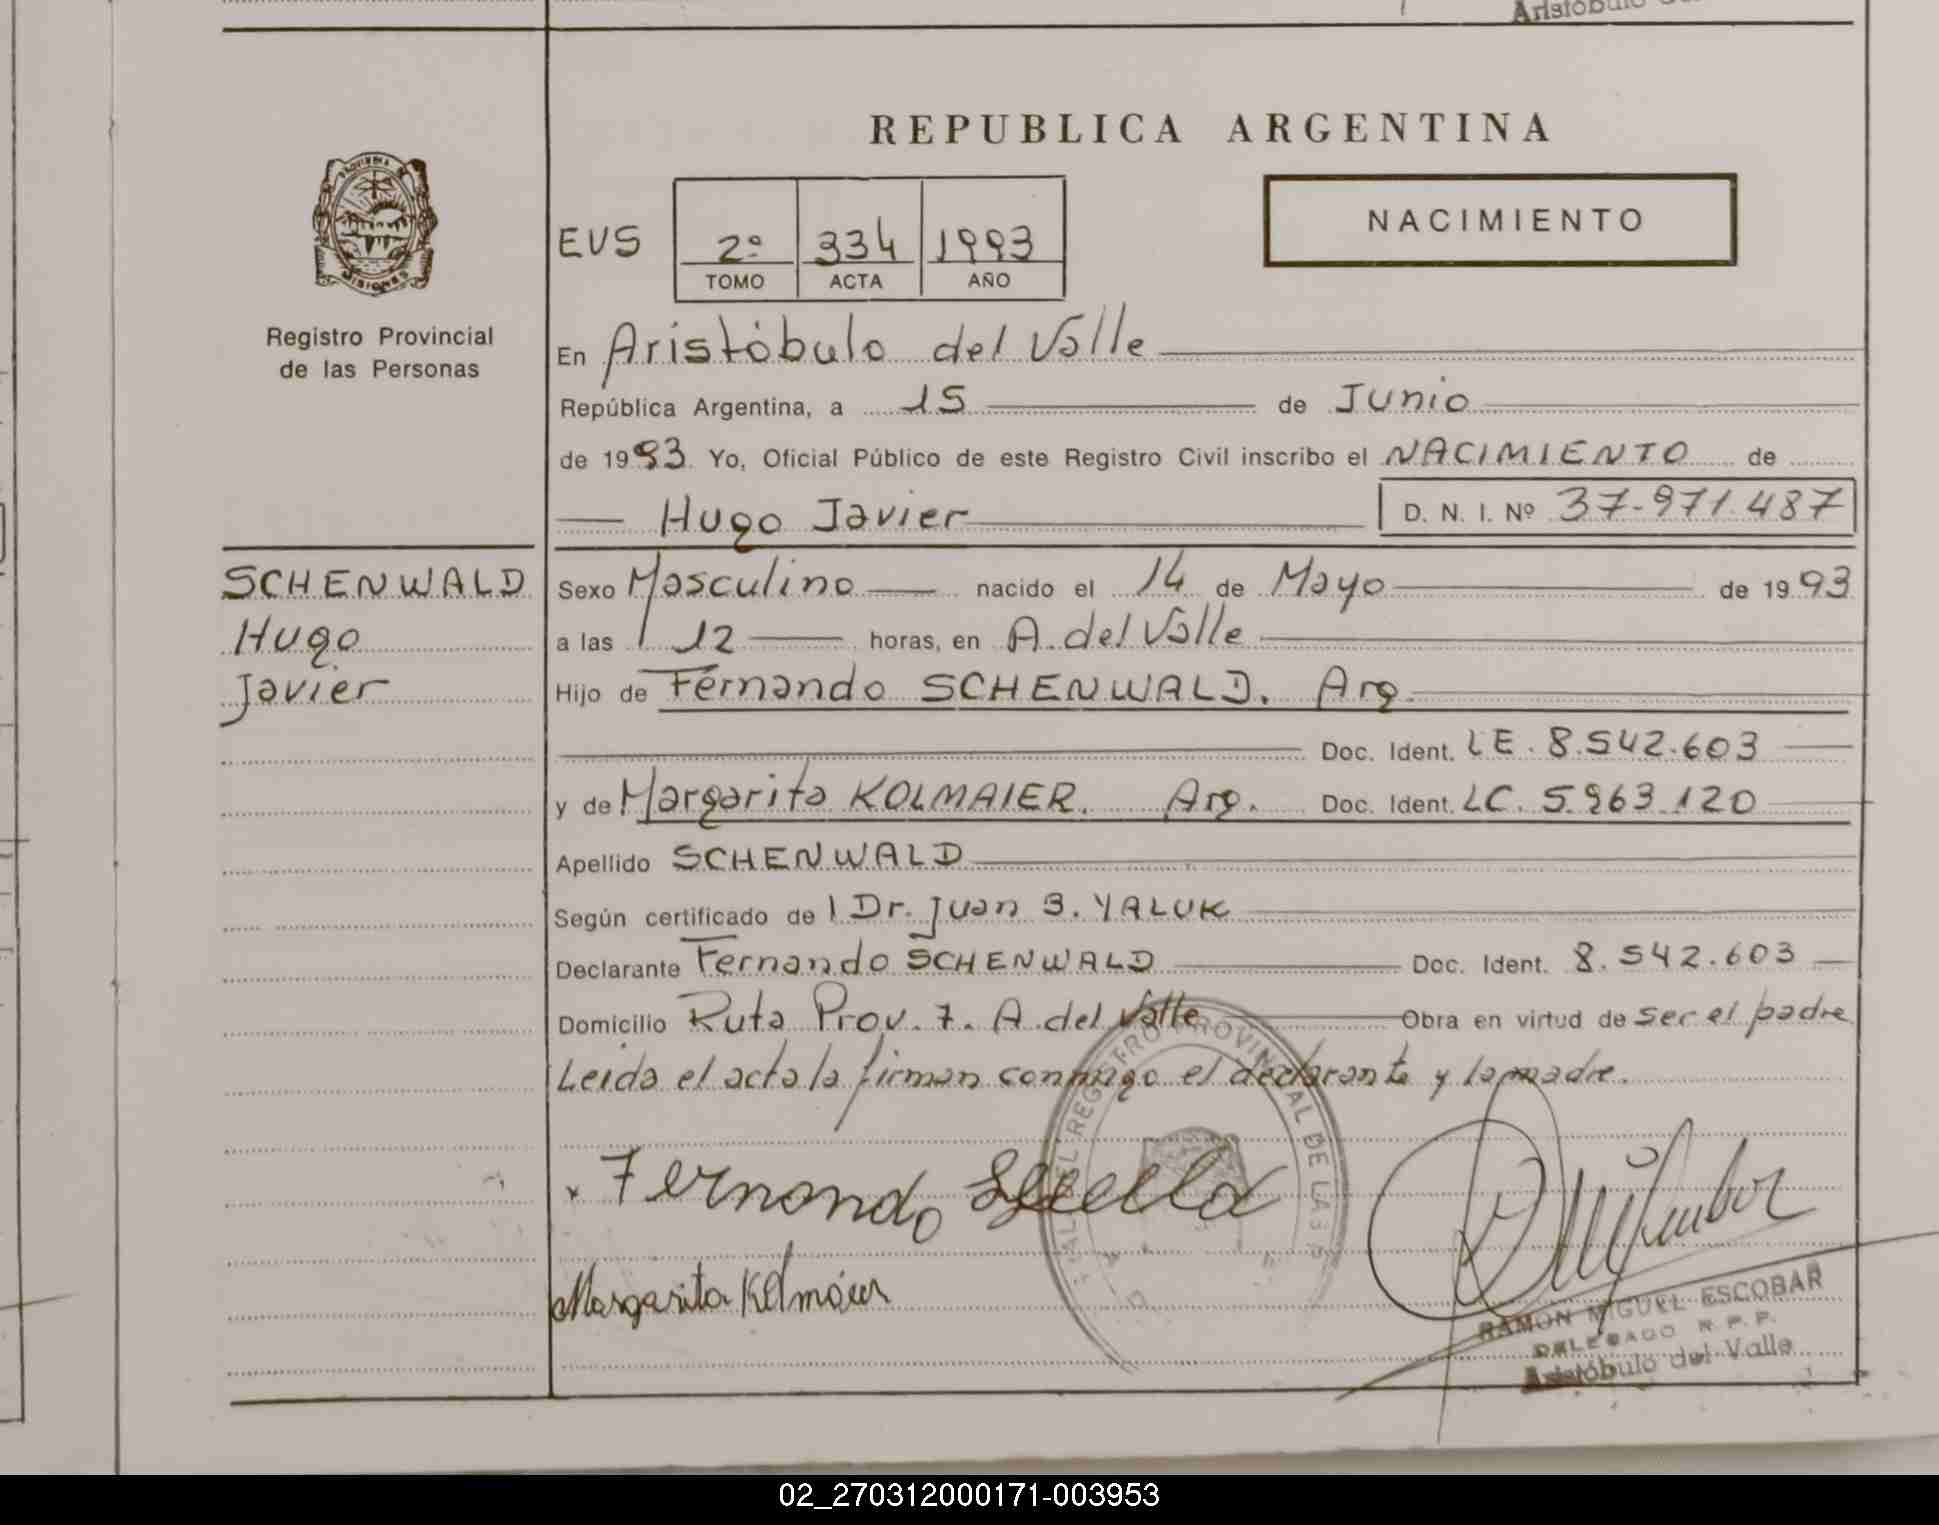 Aristóbulo
REPUBLICA ARGENTINA
PROVINCIA
MISIONES
Registro Provincial
de las Personas
EVS 2º 334 1993
TOMO ACTA AÑO
NACIMIENTO
En Aristóbulo del Valle
República Argentina, a 15 de Junio
de 1993 Yo, Oficial Público de este Registro Civil inscribo el NACIMIENTO de
Hugo Javier D. N. I. Nº 37.971.487
SCHENWALD
Hugo
Javier
Sexo Masculino nacido el 14 de Mayo de 1993
a las 12 horas, en A. del Valle
Hijo de Fernando SCHENWALD. Arg.
Doc. Ident. LE. 8.542.603
y de Margarita KOLMAIER. Arg. Doc. Ident. LC. 5.963.120
Apellido SCHENWALD
Según certificado de Dr. Juan B. YALUK
Declarante Fernando SCHENWALD Doc. Ident. 8.542.603
Domicilio Ruta Prov. 7. A. del Valle Obra en virtud de ser el padre
Leida el acta la firman conmigo el declarante y la madre.
REGISTRO PROVINCIAL DE LAS P
Fernando
Margarita Kolmaier
RAMON MIGUEL ESCOBAR
DELEGADO R. P. P.
Aristóbulo del Valle
02_270312000171-003953